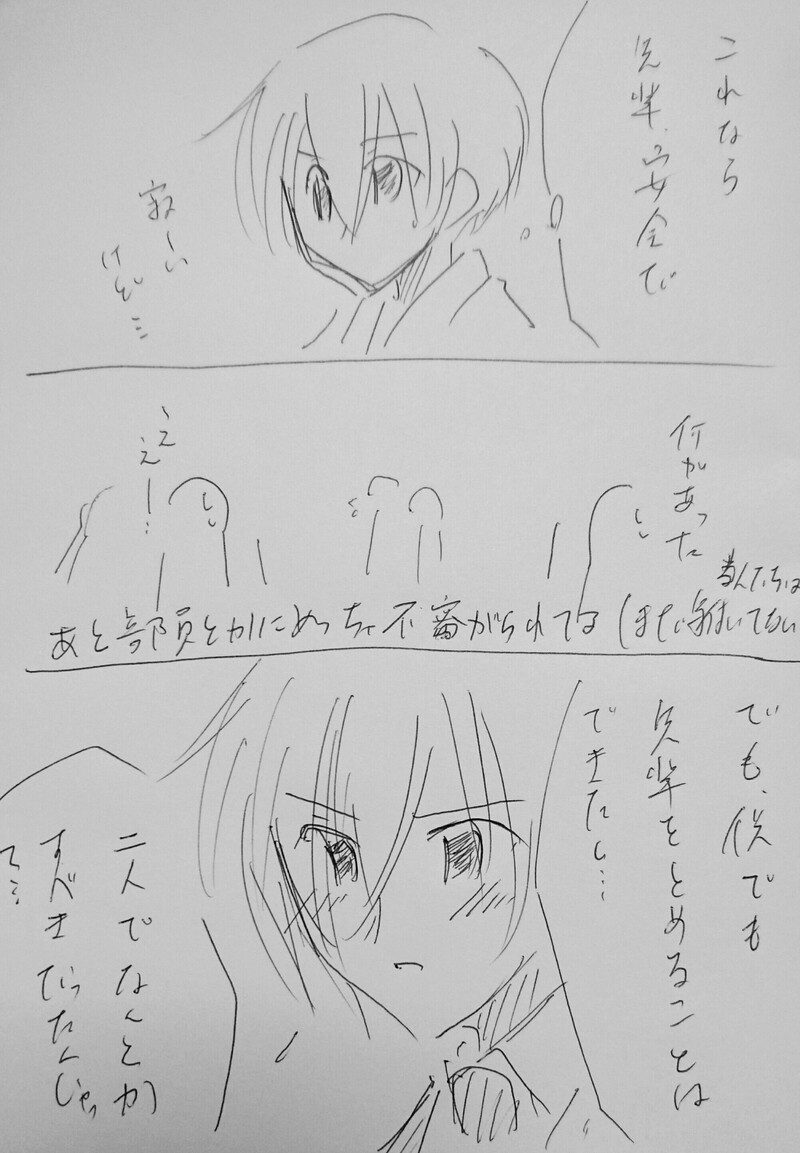 これなら
先輩、安全で
寂しい
けど…
何かあった
ええー!
あと部員とかにめっちゃ不審がられてる(まだ気付いてない
でも、僕でも
先輩をとめることは
できたし…
二人でなんとか
すべきだったんじゃっ
て…